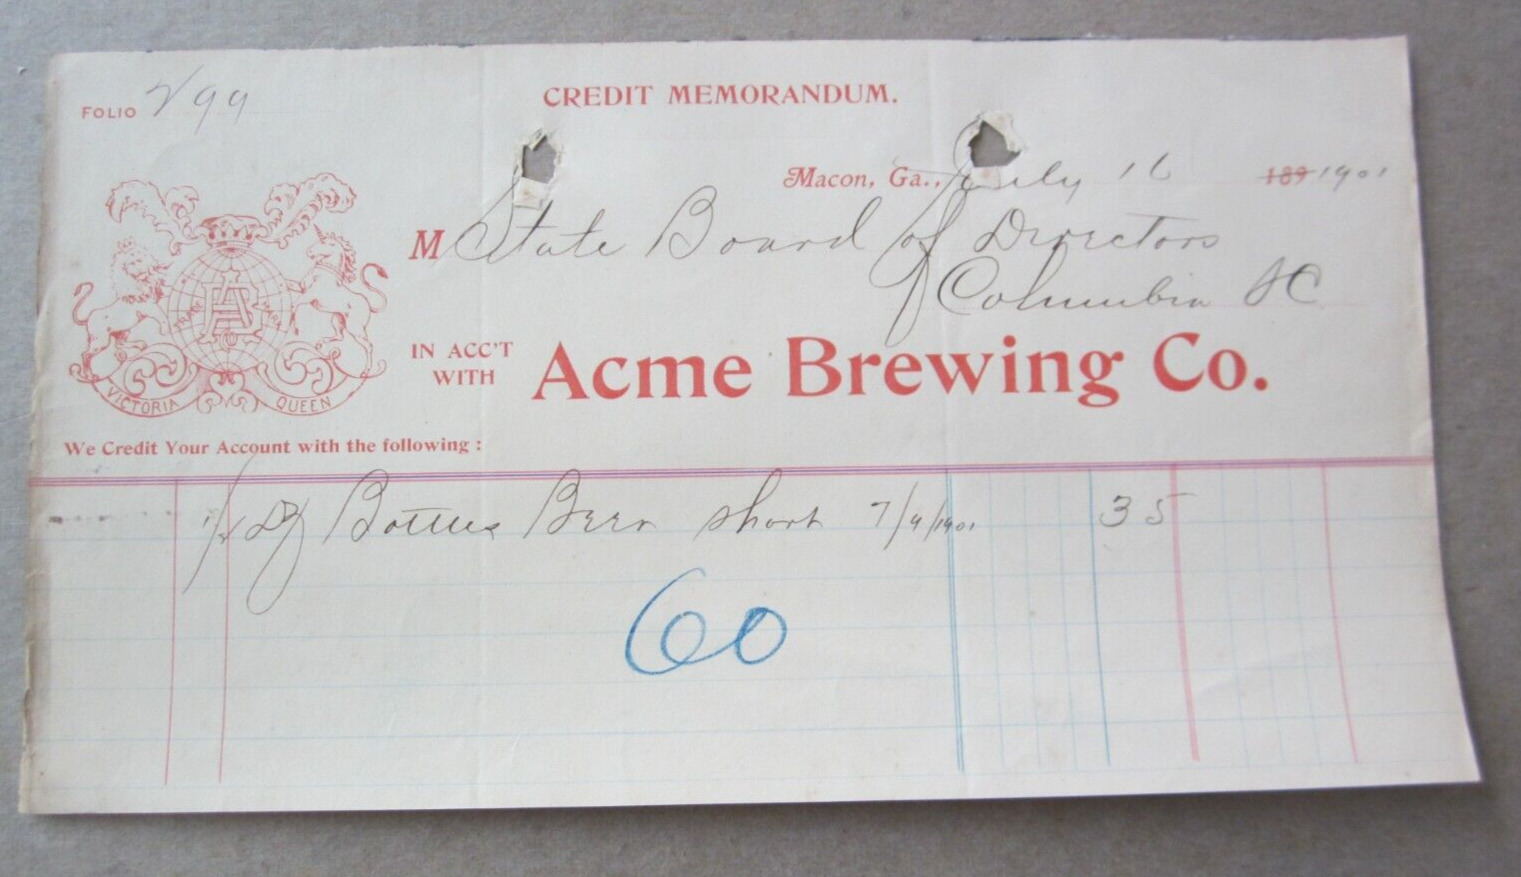 CREDIT MEMORANDUM.
FOLIO 299
Macon, Ga., July 16 189 1901
M State Board of Directors
Columbia SC
TRADE MARK
AB
Co
IN ACC'T WITH Acme Brewing Co.
VICTORIA QUEEN
We Credit Your Account with the following :
1/2 Dz Bottles Beer short 7/9/1901 35
60